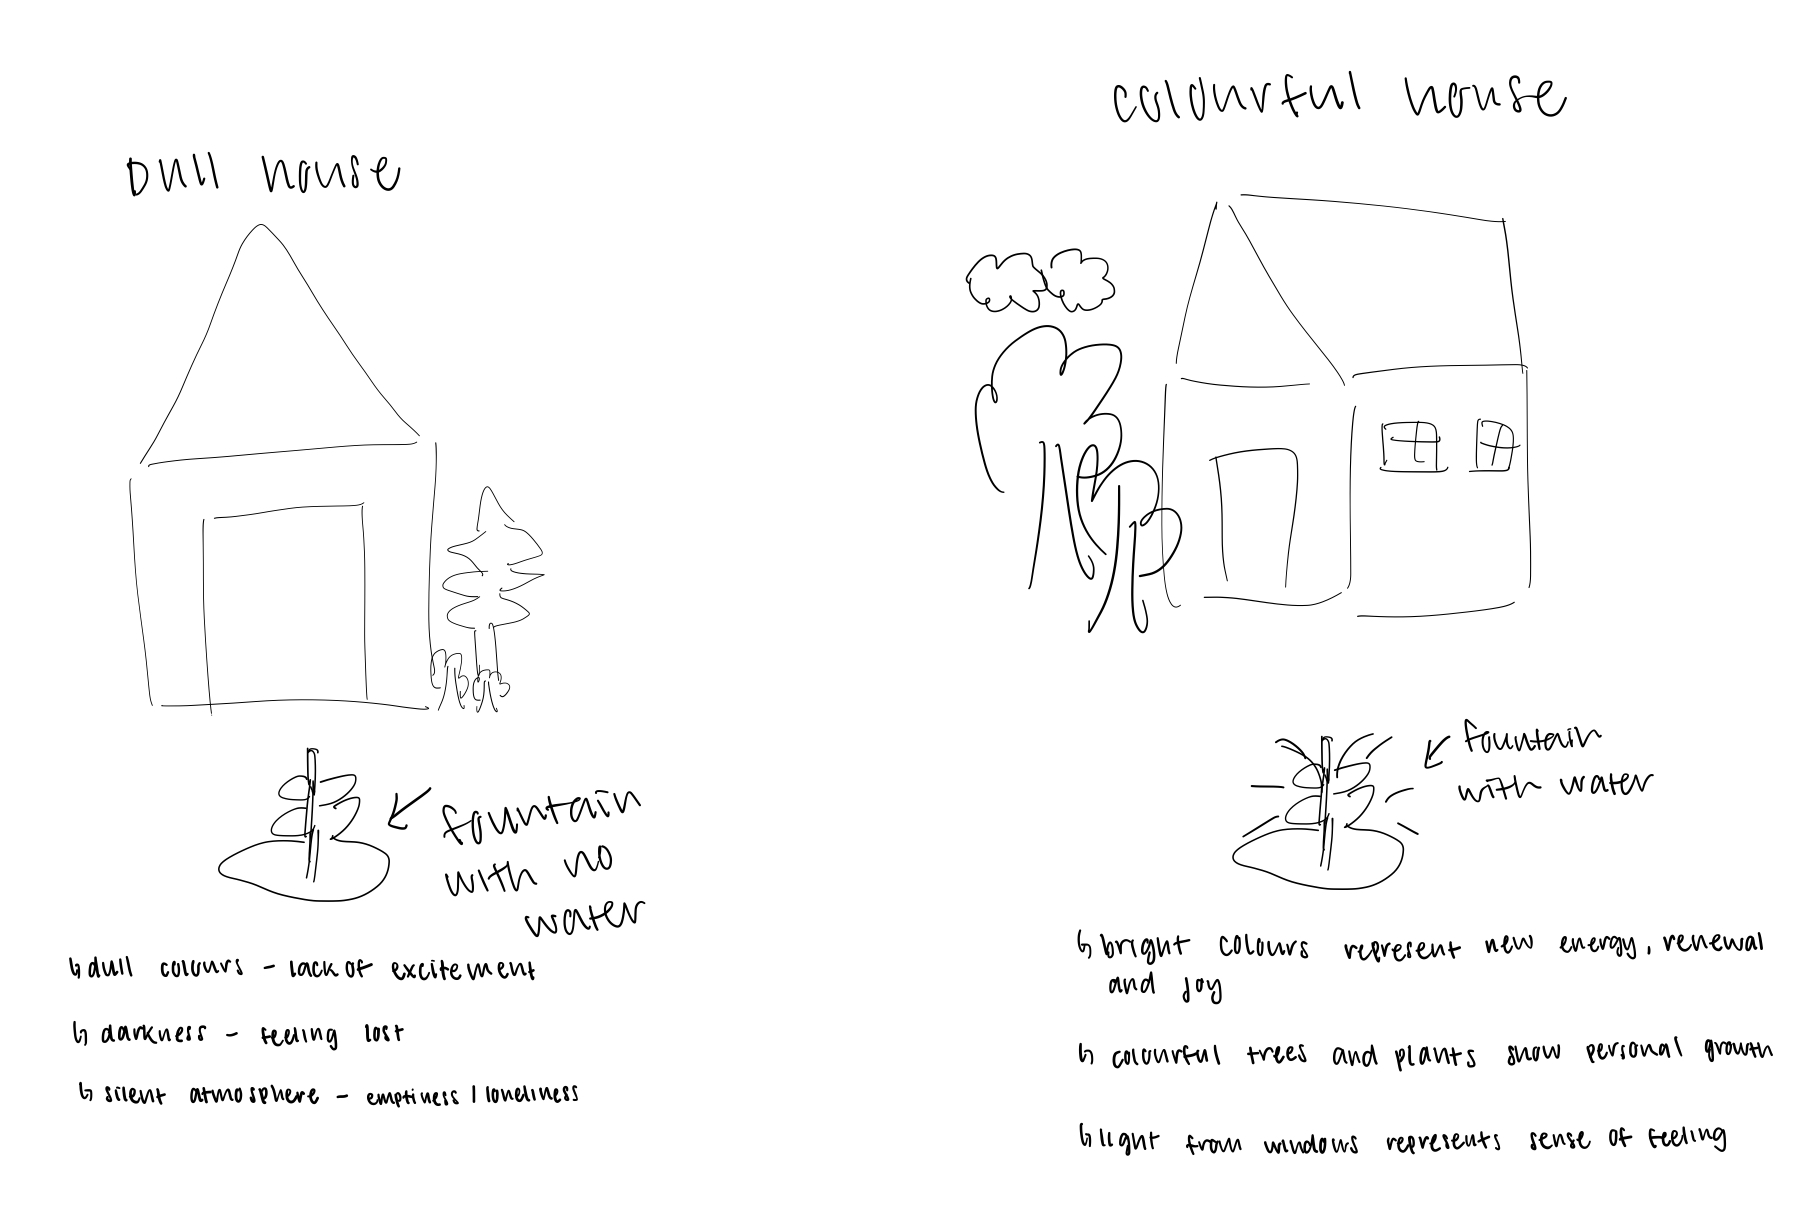 Dull house
fountain
with no
water
↳ dull colours - lack of excitement
↳ darkness - feeling lost
↳ silent atmosphere - emptiness / loneliness
colourful house
fountain
with water
↳ bright colours represent new energy, renewal
and joy
↳ colourful trees and plants show personal growth
↳ light from windows represents sense of feeling